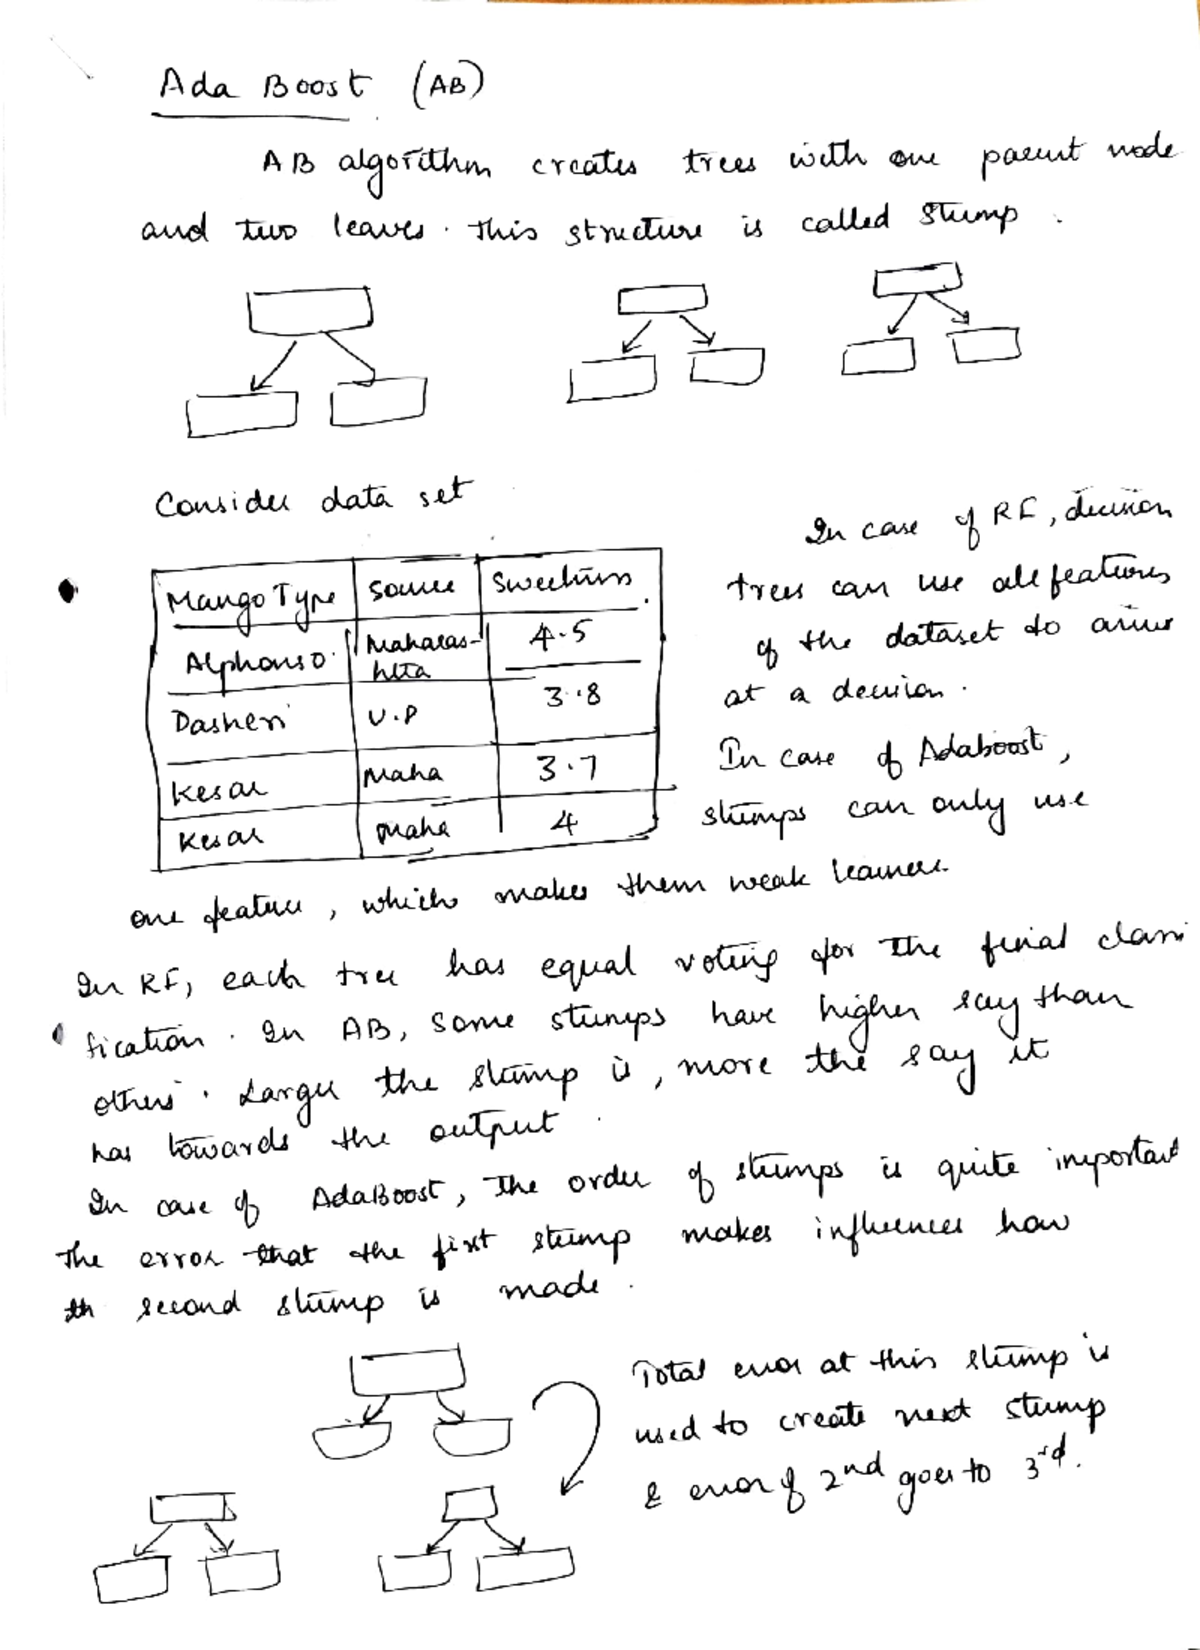 Ada Boost (AB)
AB algorithm creates trees with one parent node
and two leaves. This structure is called Stump.
Consider data set
Mango Type | Source | Sweetness
Alphonso | Maharas-htta | 4.5
Dasheri | U.P | 3.8
Kesar | Maha | 3.7
Kesar | Maha | 4
In case of RF, decision
trees can use all features
of the dataset to arrive
at a decision.
In case of Adaboost,
stumps can only use
one feature, which makes them weak learners.
In RF, each tree has equal voting for the final classi
fication. In AB, some stumps have higher say than
others. Larger the stump is, more the say it
has towards the output.
In case of AdaBoost, the order of stumps is quite important
The error that the first stump makes influences how
th second stump is made.
Total error at this stump is
used to create next stump
& error of 2nd goes to 3rd.